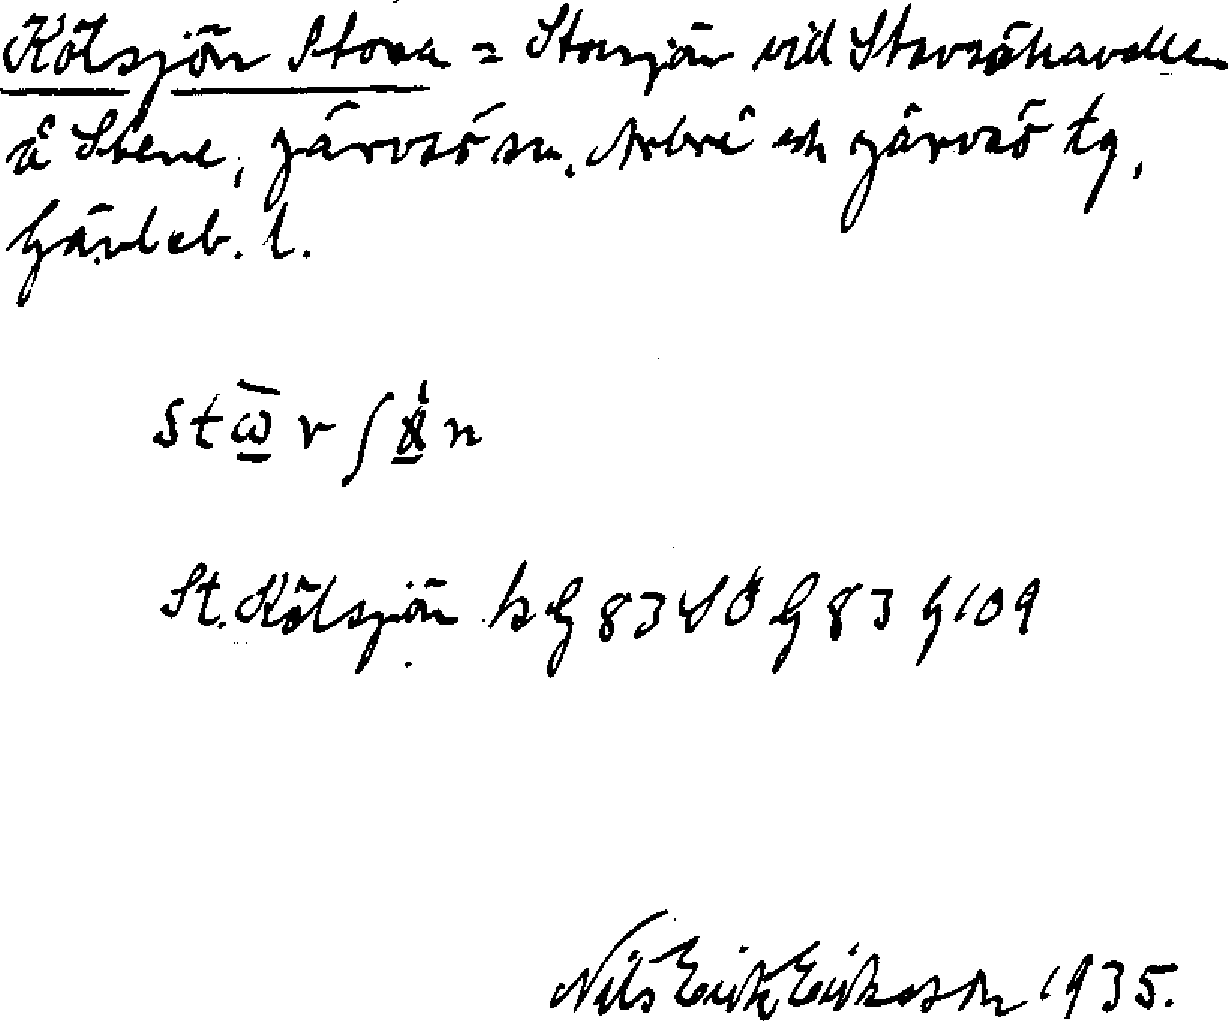 Kölsjön Stora = Storsjön vid Storsöhavallen
å Stene, Järvsö sn, Arbrå och Järvsö tg,
Gävleb. l.
stω̲̄r ʃ n
St. Kölsjön hG 83 SÖ G 83 G 109
Nils Erik Eriksson 1935.